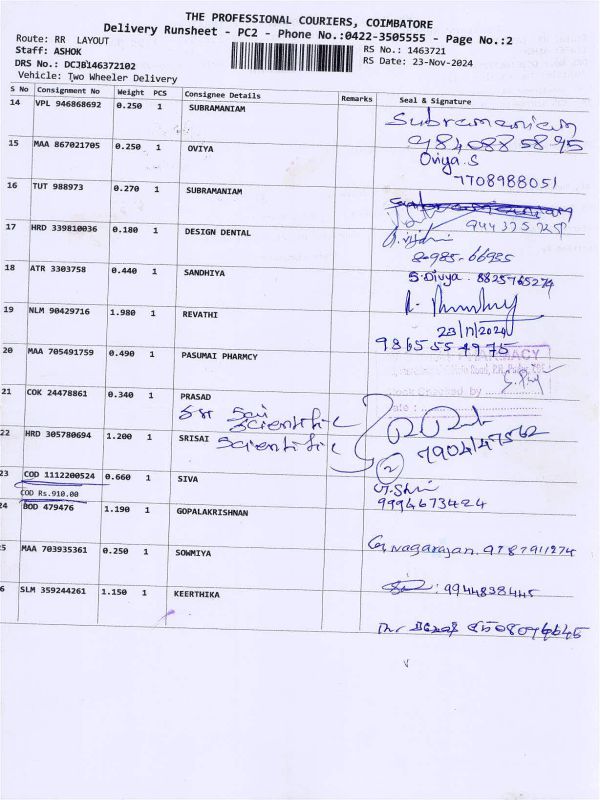 THE PROFESSIONAL COURIERS, COIMBATORE
Delivery Runsheet - PC2 - Phone No.:0422-3505555 - Page No.:2
Route: RR LAYOUT
Staff: ASHOK
RS No.: 1463721
DRS No.: DCJB146372102
RS Date: 23-Nov-2024
Vehicle: Two Wheeler Delivery
S No Consignment No Weight PCS Consignee Details Remarks Seal & Signature
14 VPL 946868692 0.250 1 SUBRAMANIAM Subramaniam
9840885895
15 MAA 867021705 0.250 1 OVIYA Oviya S
7708988051
16 TUT 988973 0.270 1 SUBRAMANIAM
17 HRD 339810036 0.180 1 DESIGN DENTAL
18 ATR 3303758 0.440 1 SANDHIYA S. Divya 8825765274
19 NLM 90429716 1.980 1 REVATHI
23/11/2024
9865554975
20 MAA 705491759 0.490 1 PASUMAI PHARMCY
PHARMACY
21 COK 24478861 0.340 1 PRASAD
Sri Sai Scientific
22 HRD 305780694 1.200 1 SRISAI Scientific
2
23 COD 1112200524 0.660 1 SIVA
COD Rs.910.00
9994673424
24 BOD 479476 1.190 1 GOPALAKRISHNAN
5 MAA 703935361 0.250 1 SOWMIYA Nagarajan. 9787911274
6 SLM 359244261 1.150 1 KEERTHIKA 9944838445